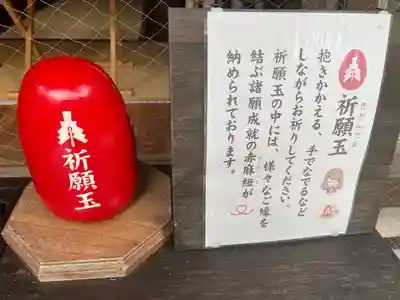 祈願玉
きがんだま
祈願玉
抱きかかえる、手でなでるなど
しながらお祈りしてください。
祈願玉の中には、様々なご縁を
結ぶ諸願成就の赤麻紐が
納められております。